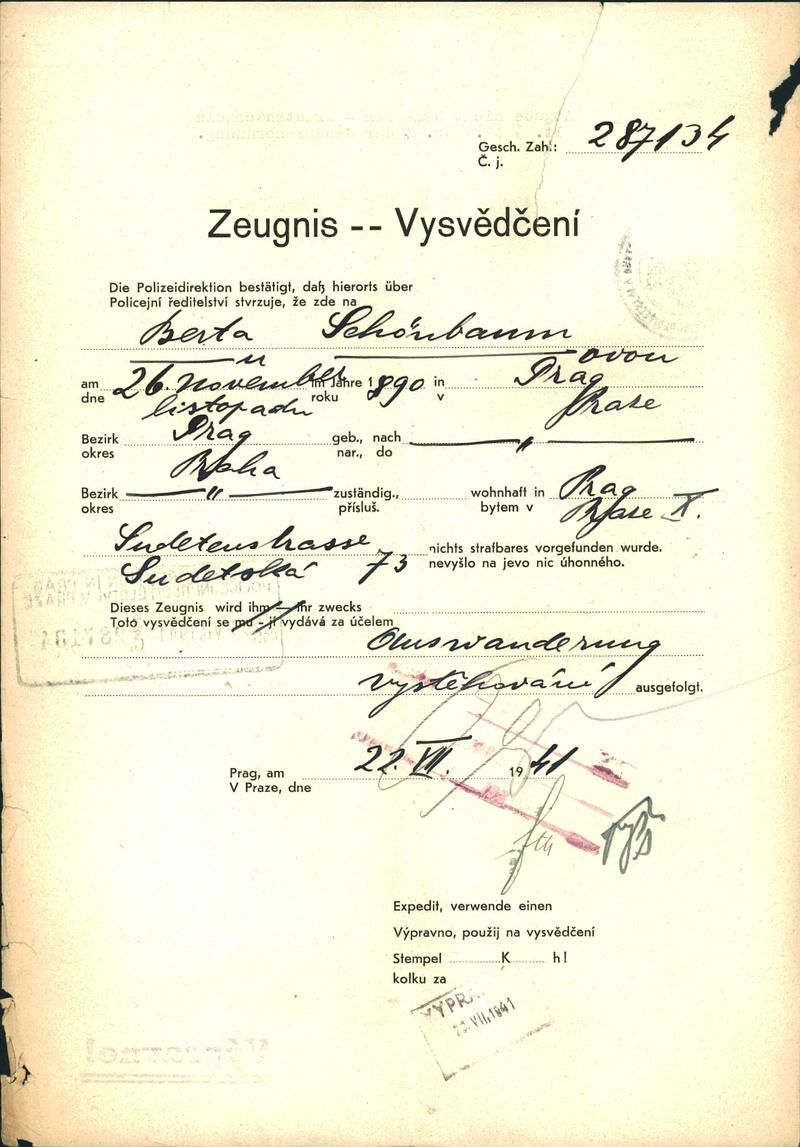 Gesch. Zahl: 287134
Č. j.
Zeugnis -- Vysvědčení
Die Polizeidirektion bestätigt, daß hierorts über
Policejní ředitelství stvrzuje, že zde na
Berta Schönbaum
u ovou
am 26. November im Jahre 1890 in Prag
dne listopadu roku v Praze
Bezirk Prag geb., nach "
okres Praha nar., do
Bezirk " zuständig., wohnhaft in Prag
okres přísluš. bytem v Praze X.
Sudetenstrasse nichts strafbares vorgefunden wurde.
Sudetská 73 nevyšlo na jevo nic úhonného.
Dieses Zeugnis wird ihm - ihr zwecks
Toto vysvědčení se mu - jí vydává za účelem
Auswanderung
vystěhování ausgefolgt.
Prag, am 22. VII. 1941
V Praze, dne
Expedit, verwende einen
Výpravno, použij na vysvědčení
Stempel K h!
kolku za
VYPRA
VII. 1941